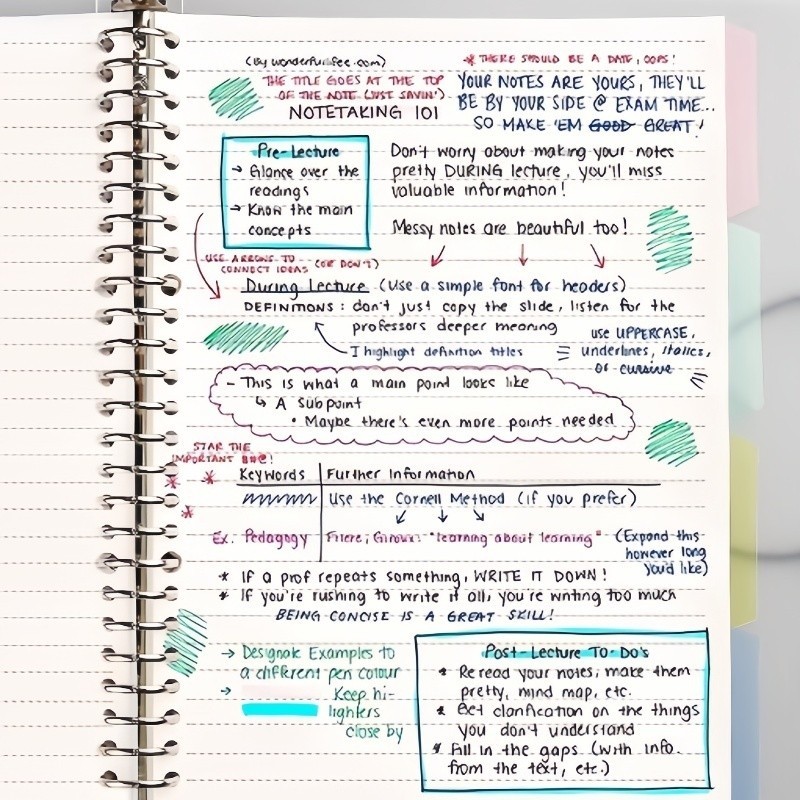 (By wonderfulifee.com)
* THERE SHOULD BE A DATE, OOPS!
THE TITLE GOES AT THE TOP
OF THE NOTE (JUST SAYIN')
NOTETAKING 101
YOUR NOTES ARE YOURS, THEY'LL
BE BY YOUR SIDE @ EXAM TIME...
SO MAKE 'EM GOOD GREAT!
Pre-Lecture
→ Glance over the
readings
→ Know the main
concepts
Don't worry about making your notes
pretty DURING lecture, you'll miss
valuable information!
Messy notes are beautiful too!
USE ARROWS TO
CONNECT IDEAS (OR DON'T)
During Lecture (Use a simple font for headers)
DEFINITIONS: don't just copy the slide, listen for the
professors deeper meaning
I highlight definition titles
use UPPERCASE,
underlines, italics,
or cursive
- This is what a main point looks like
↳ A Subpoint
• Maybe there's even more points needed
STAR THE
IMPORTANT $#@!
Keywords Further Information
Use the Cornell Method (if you prefer)
Ex. Pedagogy Friere, Giroux: "learning about learning"
(Expand this
however long
you'd like)
* If a prof repeats something, WRITE IT DOWN!
* If you're rushing to write it all, you're writing too much
BEING CONCISE IS A GREAT SKILL!
→ Designate Examples to
a different pen colour
→ Keep hi-
lighters
close by
Post-Lecture To-Do's
* Reread your notes, make them
pretty, mind map, etc.
* Get clarification on the things
you don't understand
* Fill in the gaps (with info.
from the text, etc.)